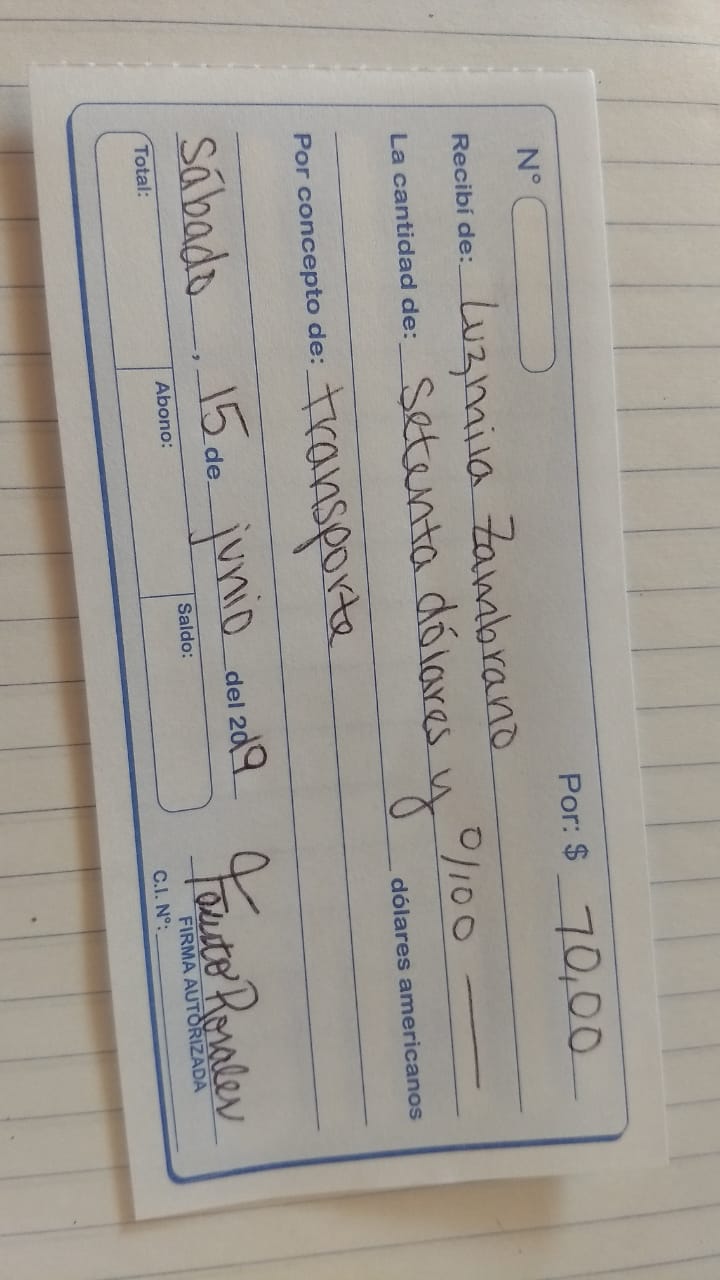 Nº Por: $ 70,00
Recibí de: Luzmila Zambrano
La cantidad de: Setenta dólares y 0/100 —
dólares americanos
Por concepto de: transporte
Sábado, 15 de junio del 2019
Fausto Rosales
FIRMA AUTORIZADA
Total: Abono: Saldo: C.I. Nº: